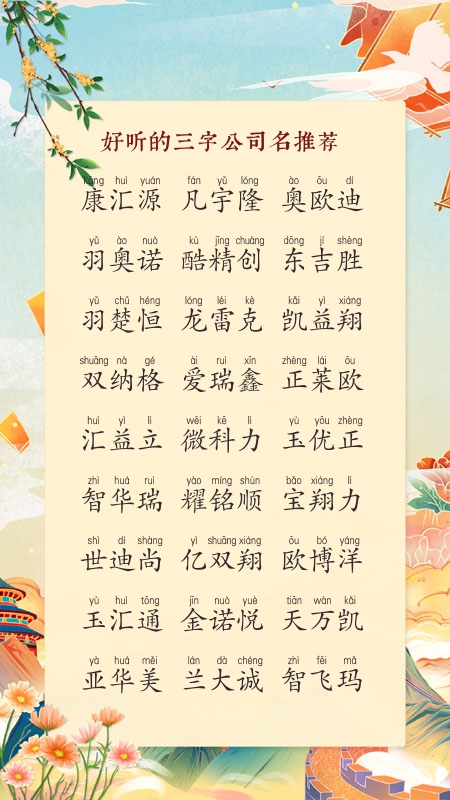 好听的三字公司名推荐
kāng huì yuán fán yǔ lóng ào ōu dí
康汇源 凡宇隆 奥欧迪
yǔ ào nuò kù jīng chuàng dōng jí shèng
羽奥诺 酷精创 东吉胜
yǔ chǔ héng lóng léi kè kǎi yì xiáng
羽楚恒 龙雷克 凯益翔
shuāng nà gé ài ruì xīn zhèng lái ōu
双纳格 爱瑞鑫 正莱欧
huì yì lì wēi kē lì yù yōu zhèng
汇益立 微科力 玉优正
zhì huá ruì yào míng shùn bǎo xiáng lì
智华瑞 耀铭顺 宝翔力
shì dí shàng yì shuāng xiáng ōu bó yáng
世迪尚 亿双翔 欧博洋
yù huì tōng jīn nuò yuè tiān wàn kǎi
玉汇通 金诺悦 天万凯
yà huá měi lán dà chéng zhì fēi mǎ
亚华美 兰大诚 智飞玛